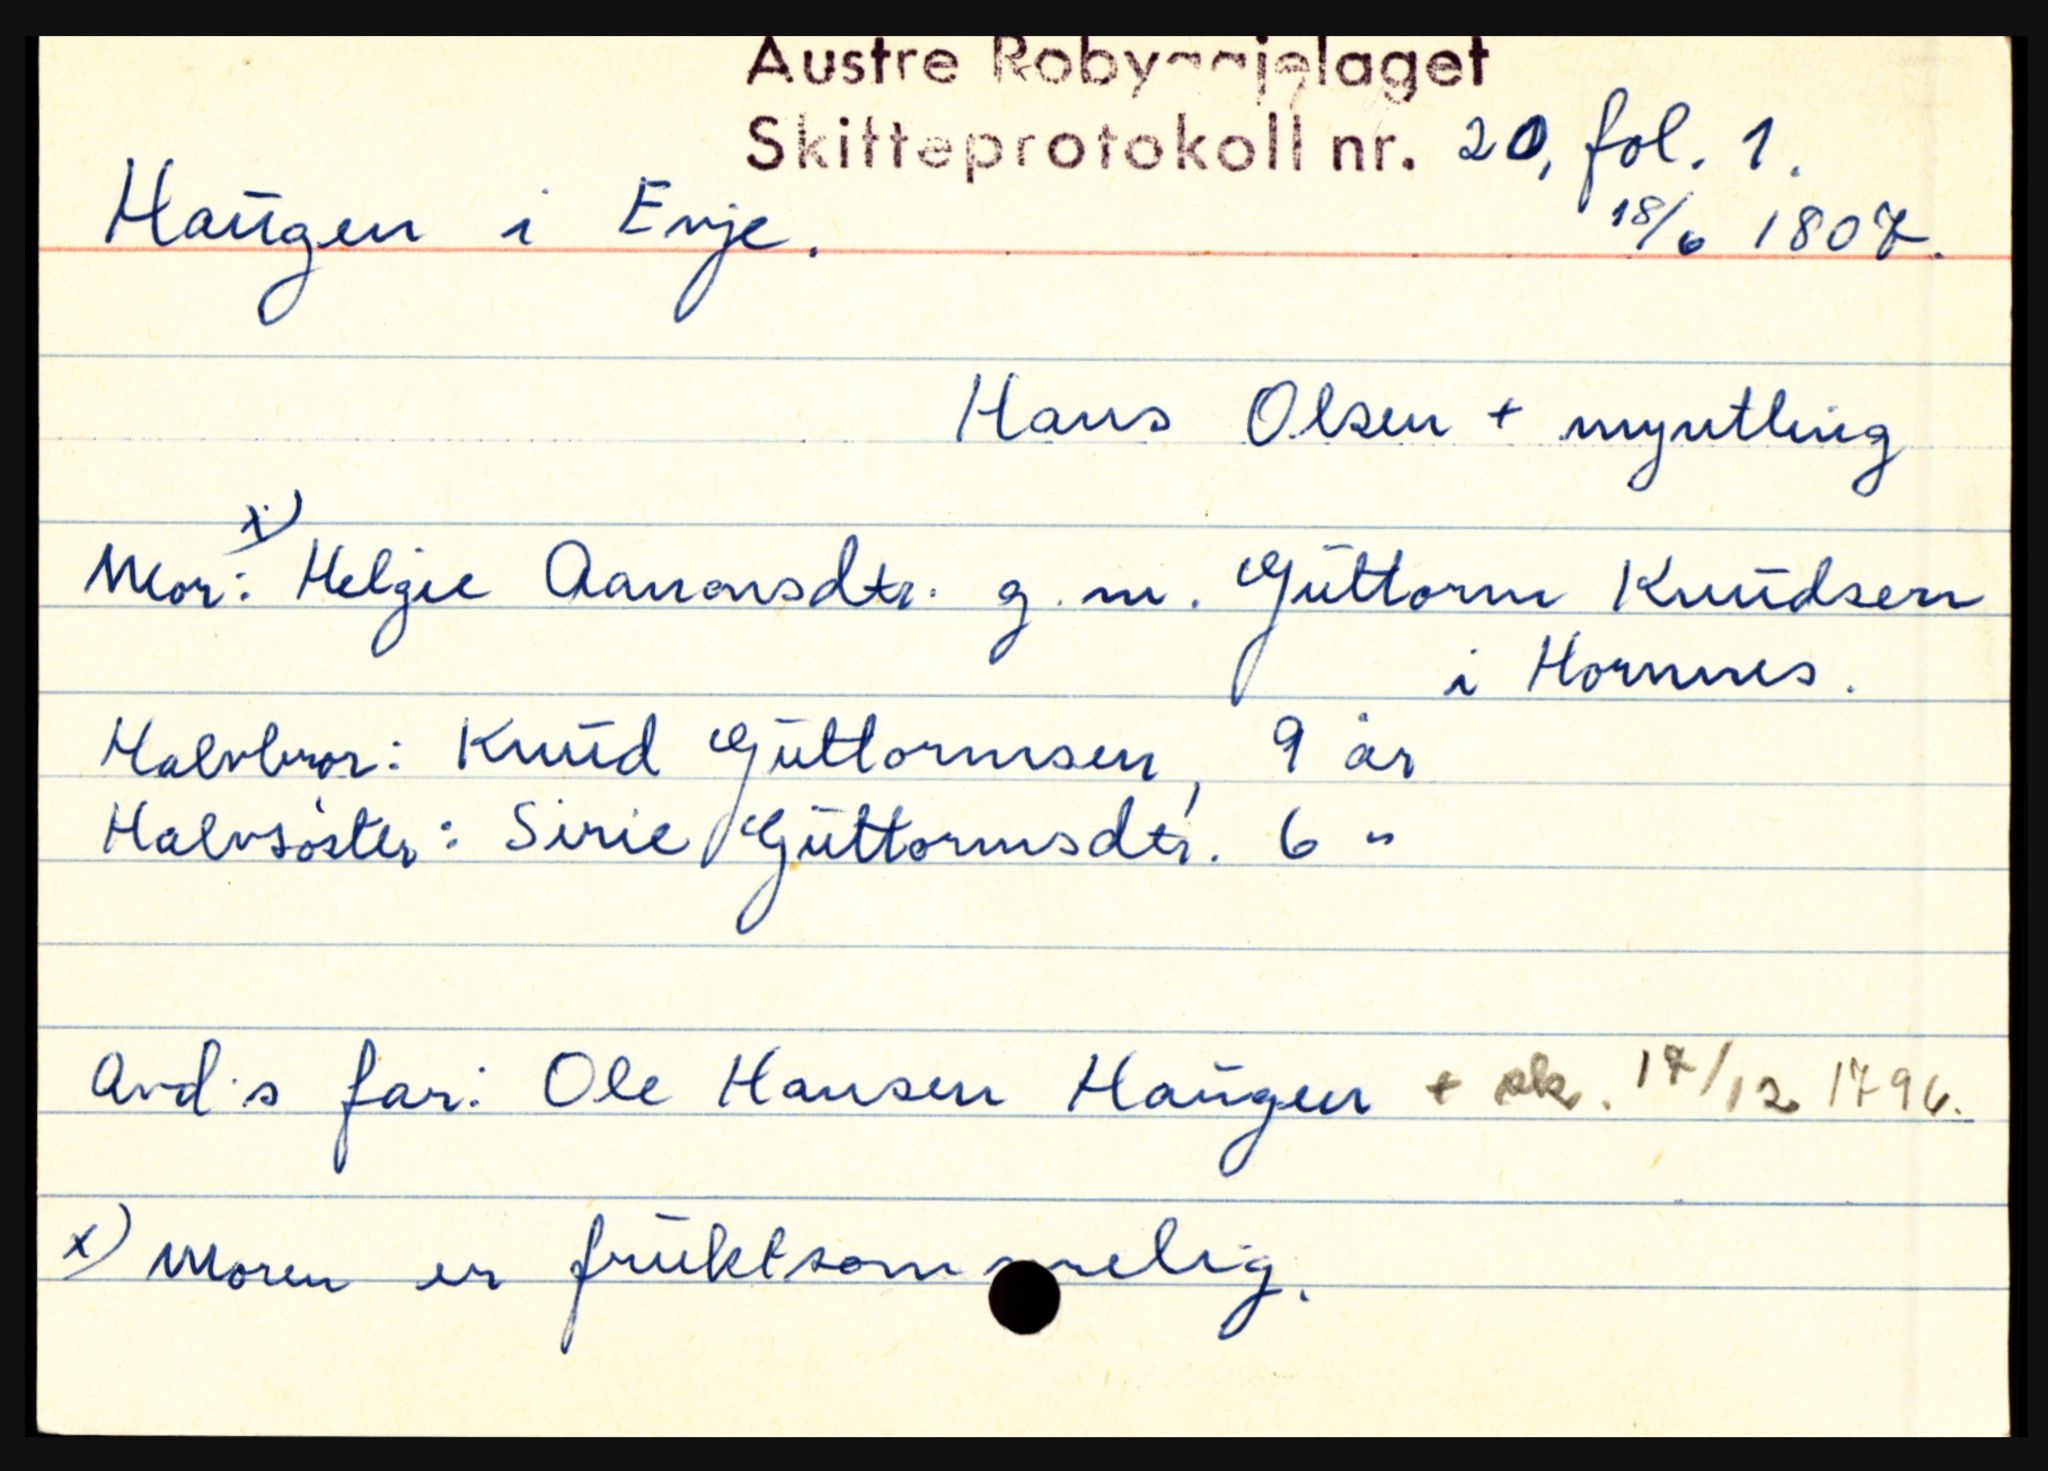 Austre Robyggjelaget
Skifteprotokoll nr. 20, fol. 1.
Haugen i Evje. 18/6 1807.
Hans Olsen + myntling
Mor: x) Helgie Aanonsdtr. g.m. Guttorm Knudsen
i Hornnes.
Halvbror: Knud Guttormsen, 9 år
Halvsöster: Sirie Guttormsdtr. 6 "
Avd's far: Ole Hansen Haugen + sk. 17/12 1796.
x) Moren er fruktsommelig.